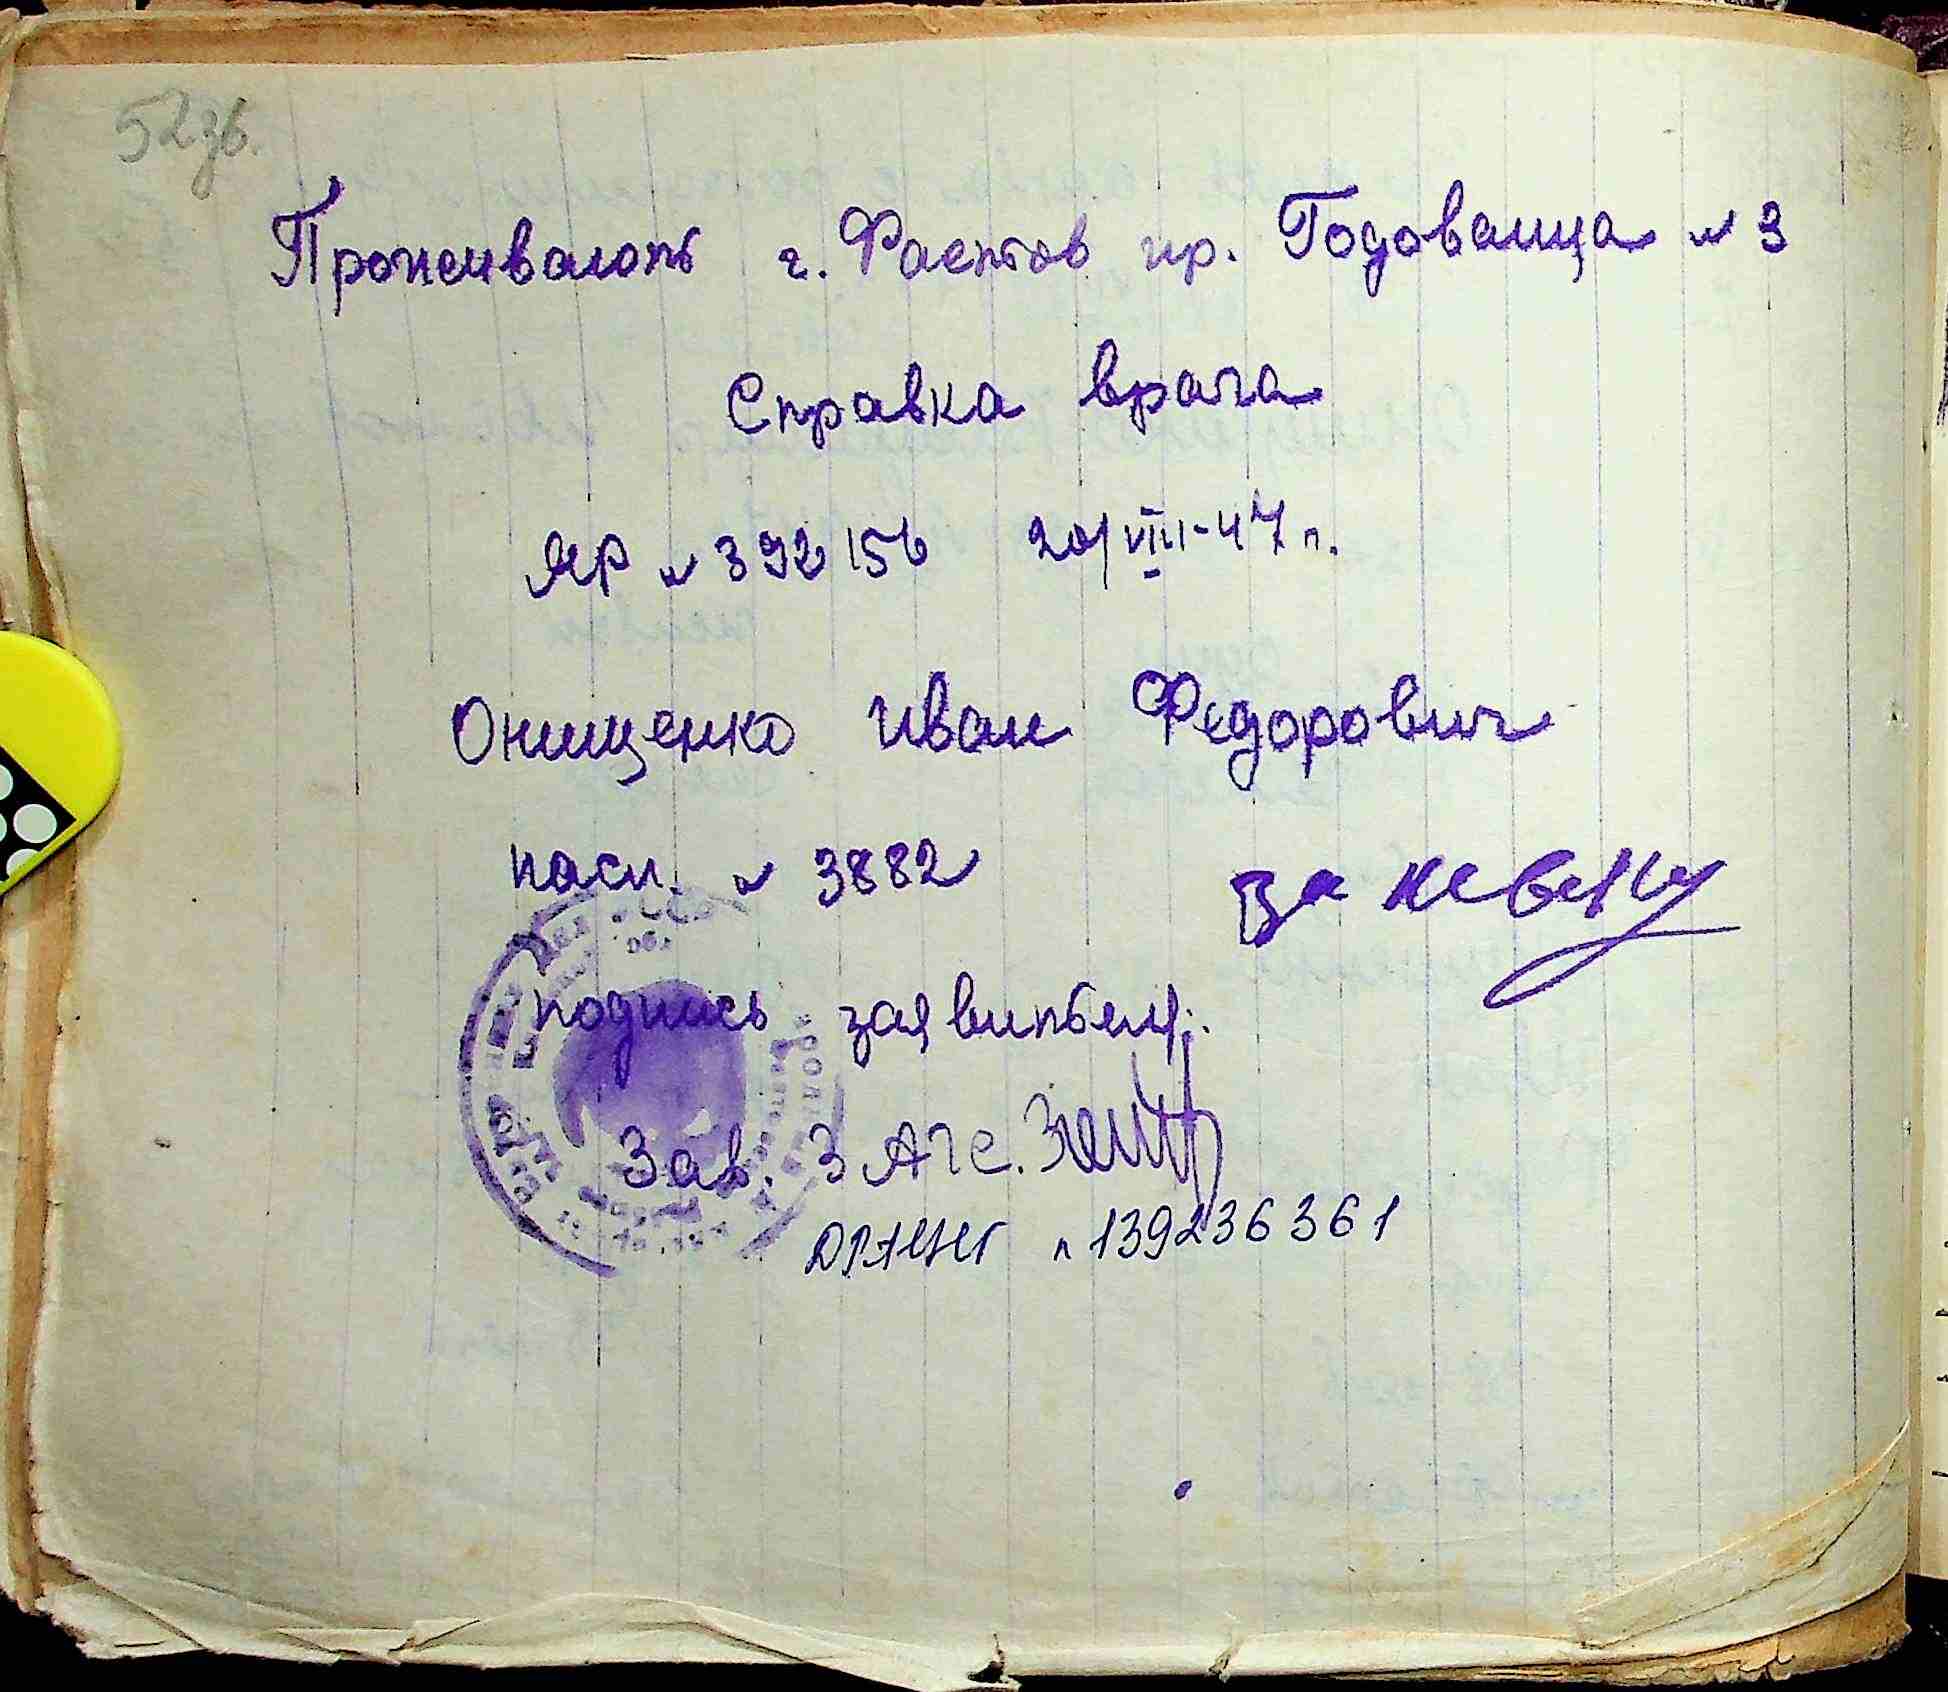 52зв.
Проживают г. Фастов пр. Годованца № 3
Справка врача
ЯР № 392156 20/VIII-47 г.
Онищенко Иван Федорович
пасп. № 3882
подпись заявителя.
Зав. ЗАГС.
№ 139236361